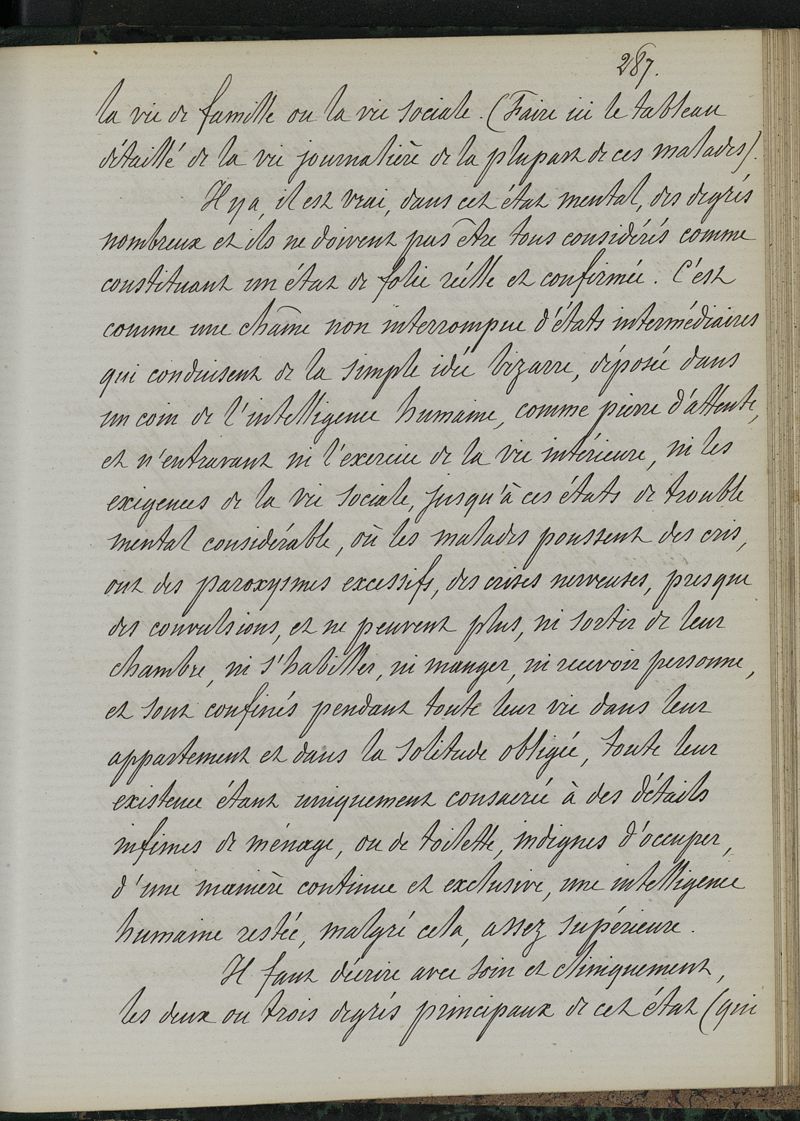 287.
la vie de famille ou la vie sociale. (Faire ici le tableau
détaillé de la vie journalière de la plupart de ces malades).
Il y a, il est vrai, dans cet état mental, des degrés
nombreux et ils ne doivent pas être tous considérés comme
constituant un état de folie réelle et confirmée. C'est
comme une chaîne non interrompue d'états intermédiaires
qui conduisent de la simple idée bizarre, déposée dans
un coin de l'intelligence humaine, comme pierre d'attente,
et n'entravant ni l'exercice de la vie intérieure, ni les
exigences de la vie sociale, jusqu'à ces états de trouble
mental considérable, où les malades poussent des cris,
ont des paroxysmes excessifs, des crises nerveuses, presque
des convulsions, et ne peuvent plus, ni sortir de leur
chambre, ni s'habiller, ni manger, ni recevoir personne,
et sont confinés pendant toute leur vie dans leur
appartement et dans la solitude obligée, toute leur
existence étant uniquement consacrée à des détails
infimes de ménage, ou de toilette, indignes d'occuper,
d'une manière continue et exclusive, une intelligence
humaine restée, malgré cela, assez supérieure.
Il faut décrire avec soin et cliniquement,
les deux ou trois degrés principaux de cet état (qui